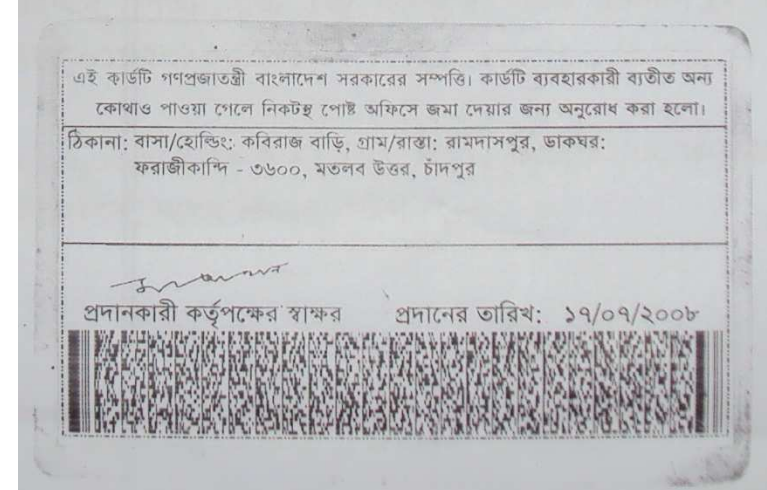 এই কার্ডটি গণপ্রজাতন্ত্রী বাংলাদেশ সরকারের সম্পত্তি। কার্ডটি ব্যবহারকারী ব্যতীত অন্য
কোথাও পাওয়া গেলে নিকটস্থ পোষ্ট অফিসে জমা দেয়ার জন্য অনুরোধ করা হলো।
ঠিকানা: বাসা/হোল্ডিং: কবিরাজ বাড়ি, গ্রাম/রাস্তা: রামদাসপুর, ডাকঘর:
ফরাজীকান্দি - ৩৬০০, মতলব উত্তর, চাঁদপুর
প্রদানকারী কর্তৃপক্ষের স্বাক্ষর প্রদানের তারিখ: ১৭/০৭/২০০৮